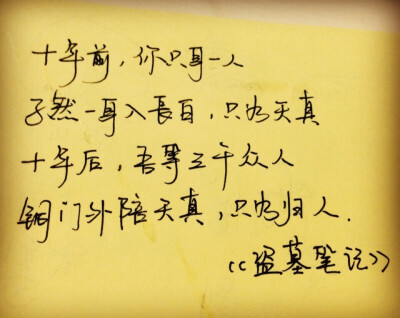 十年前，你只身一人
孑然一身入長白，只为天真
十年后，吾等三千众人
铜门外陪天真，只为归人.
《盗墓笔记》